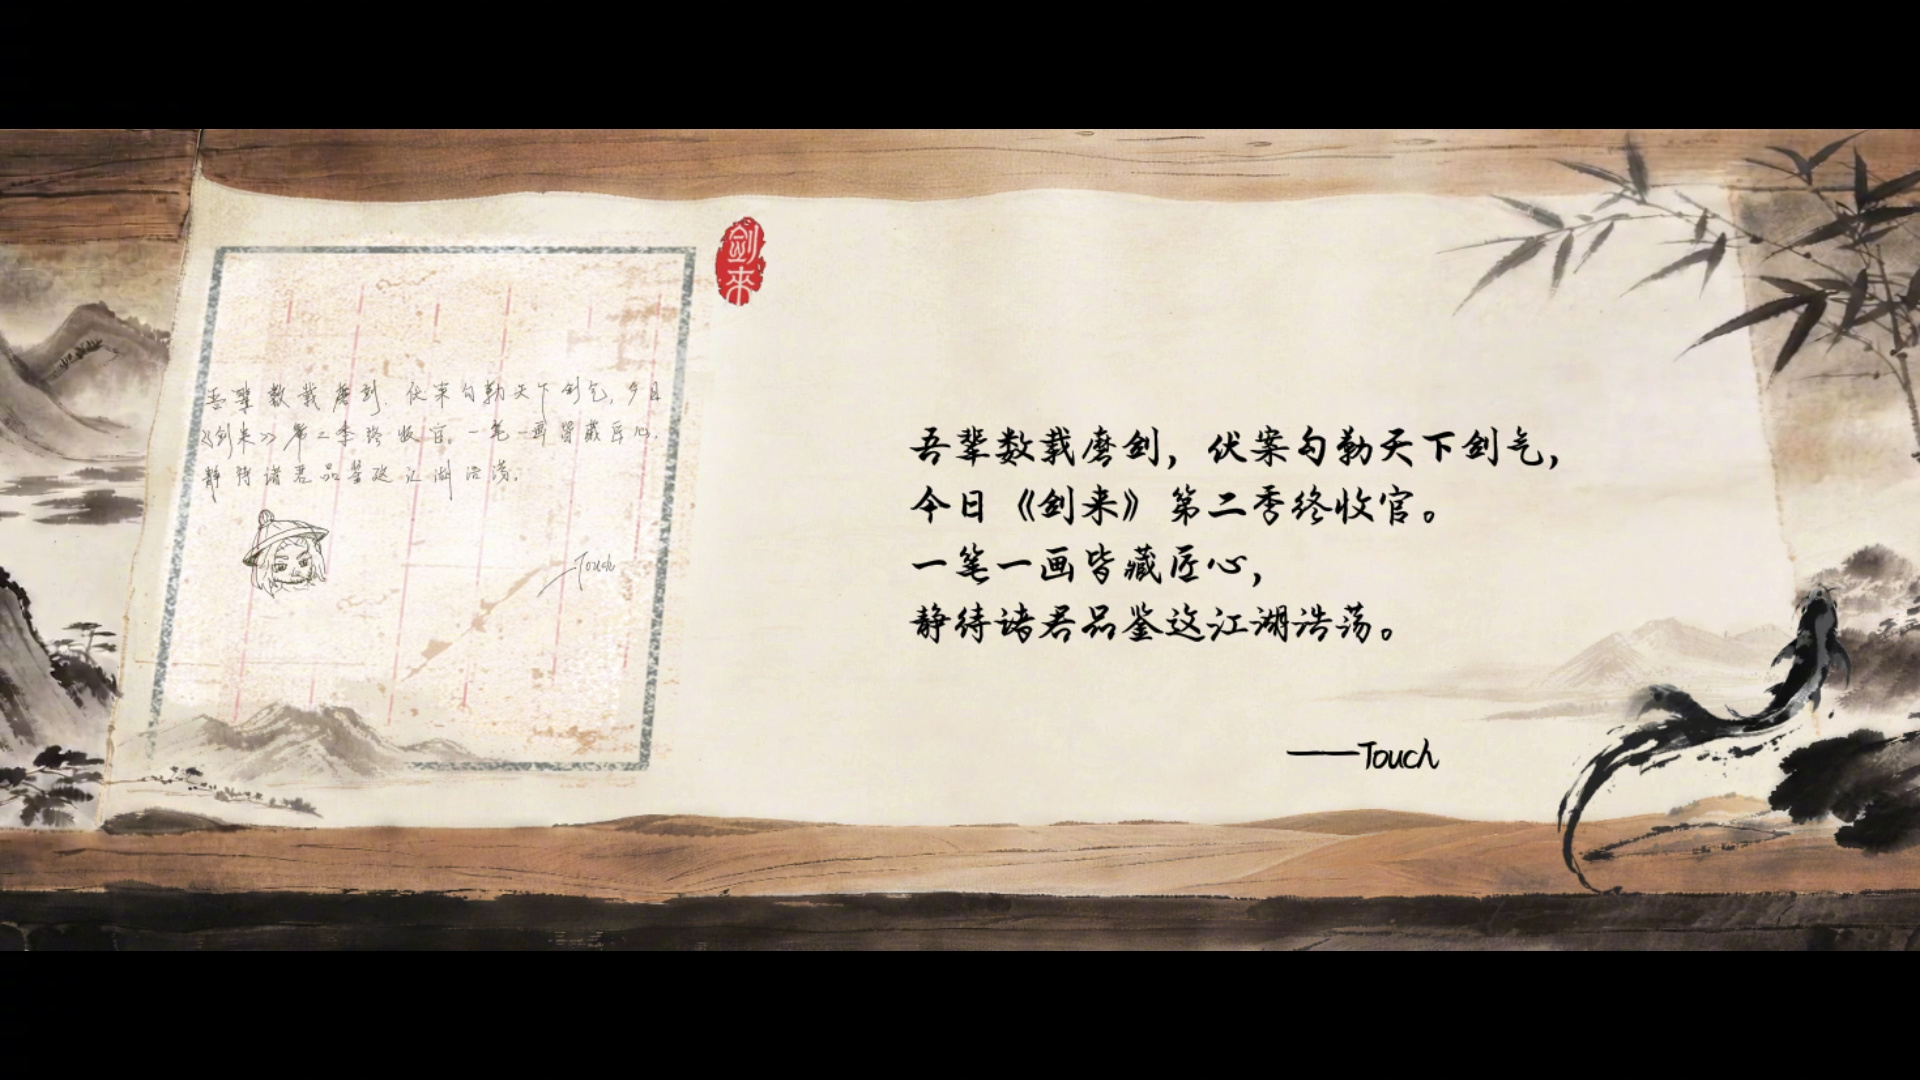 吾辈数载磨剑,伏案勾勒天下剑气,今日
《剑来》第二季终收官。一笔一画皆藏匠心,
静待诸君品鉴这江湖浩荡。
—Touch
剑来
吾辈数载磨剑，伏案勾勒天下剑气，
今日《剑来》第二季终收官。
一笔一画皆藏匠心，
静待诸君品鉴这江湖浩荡。
——Touch